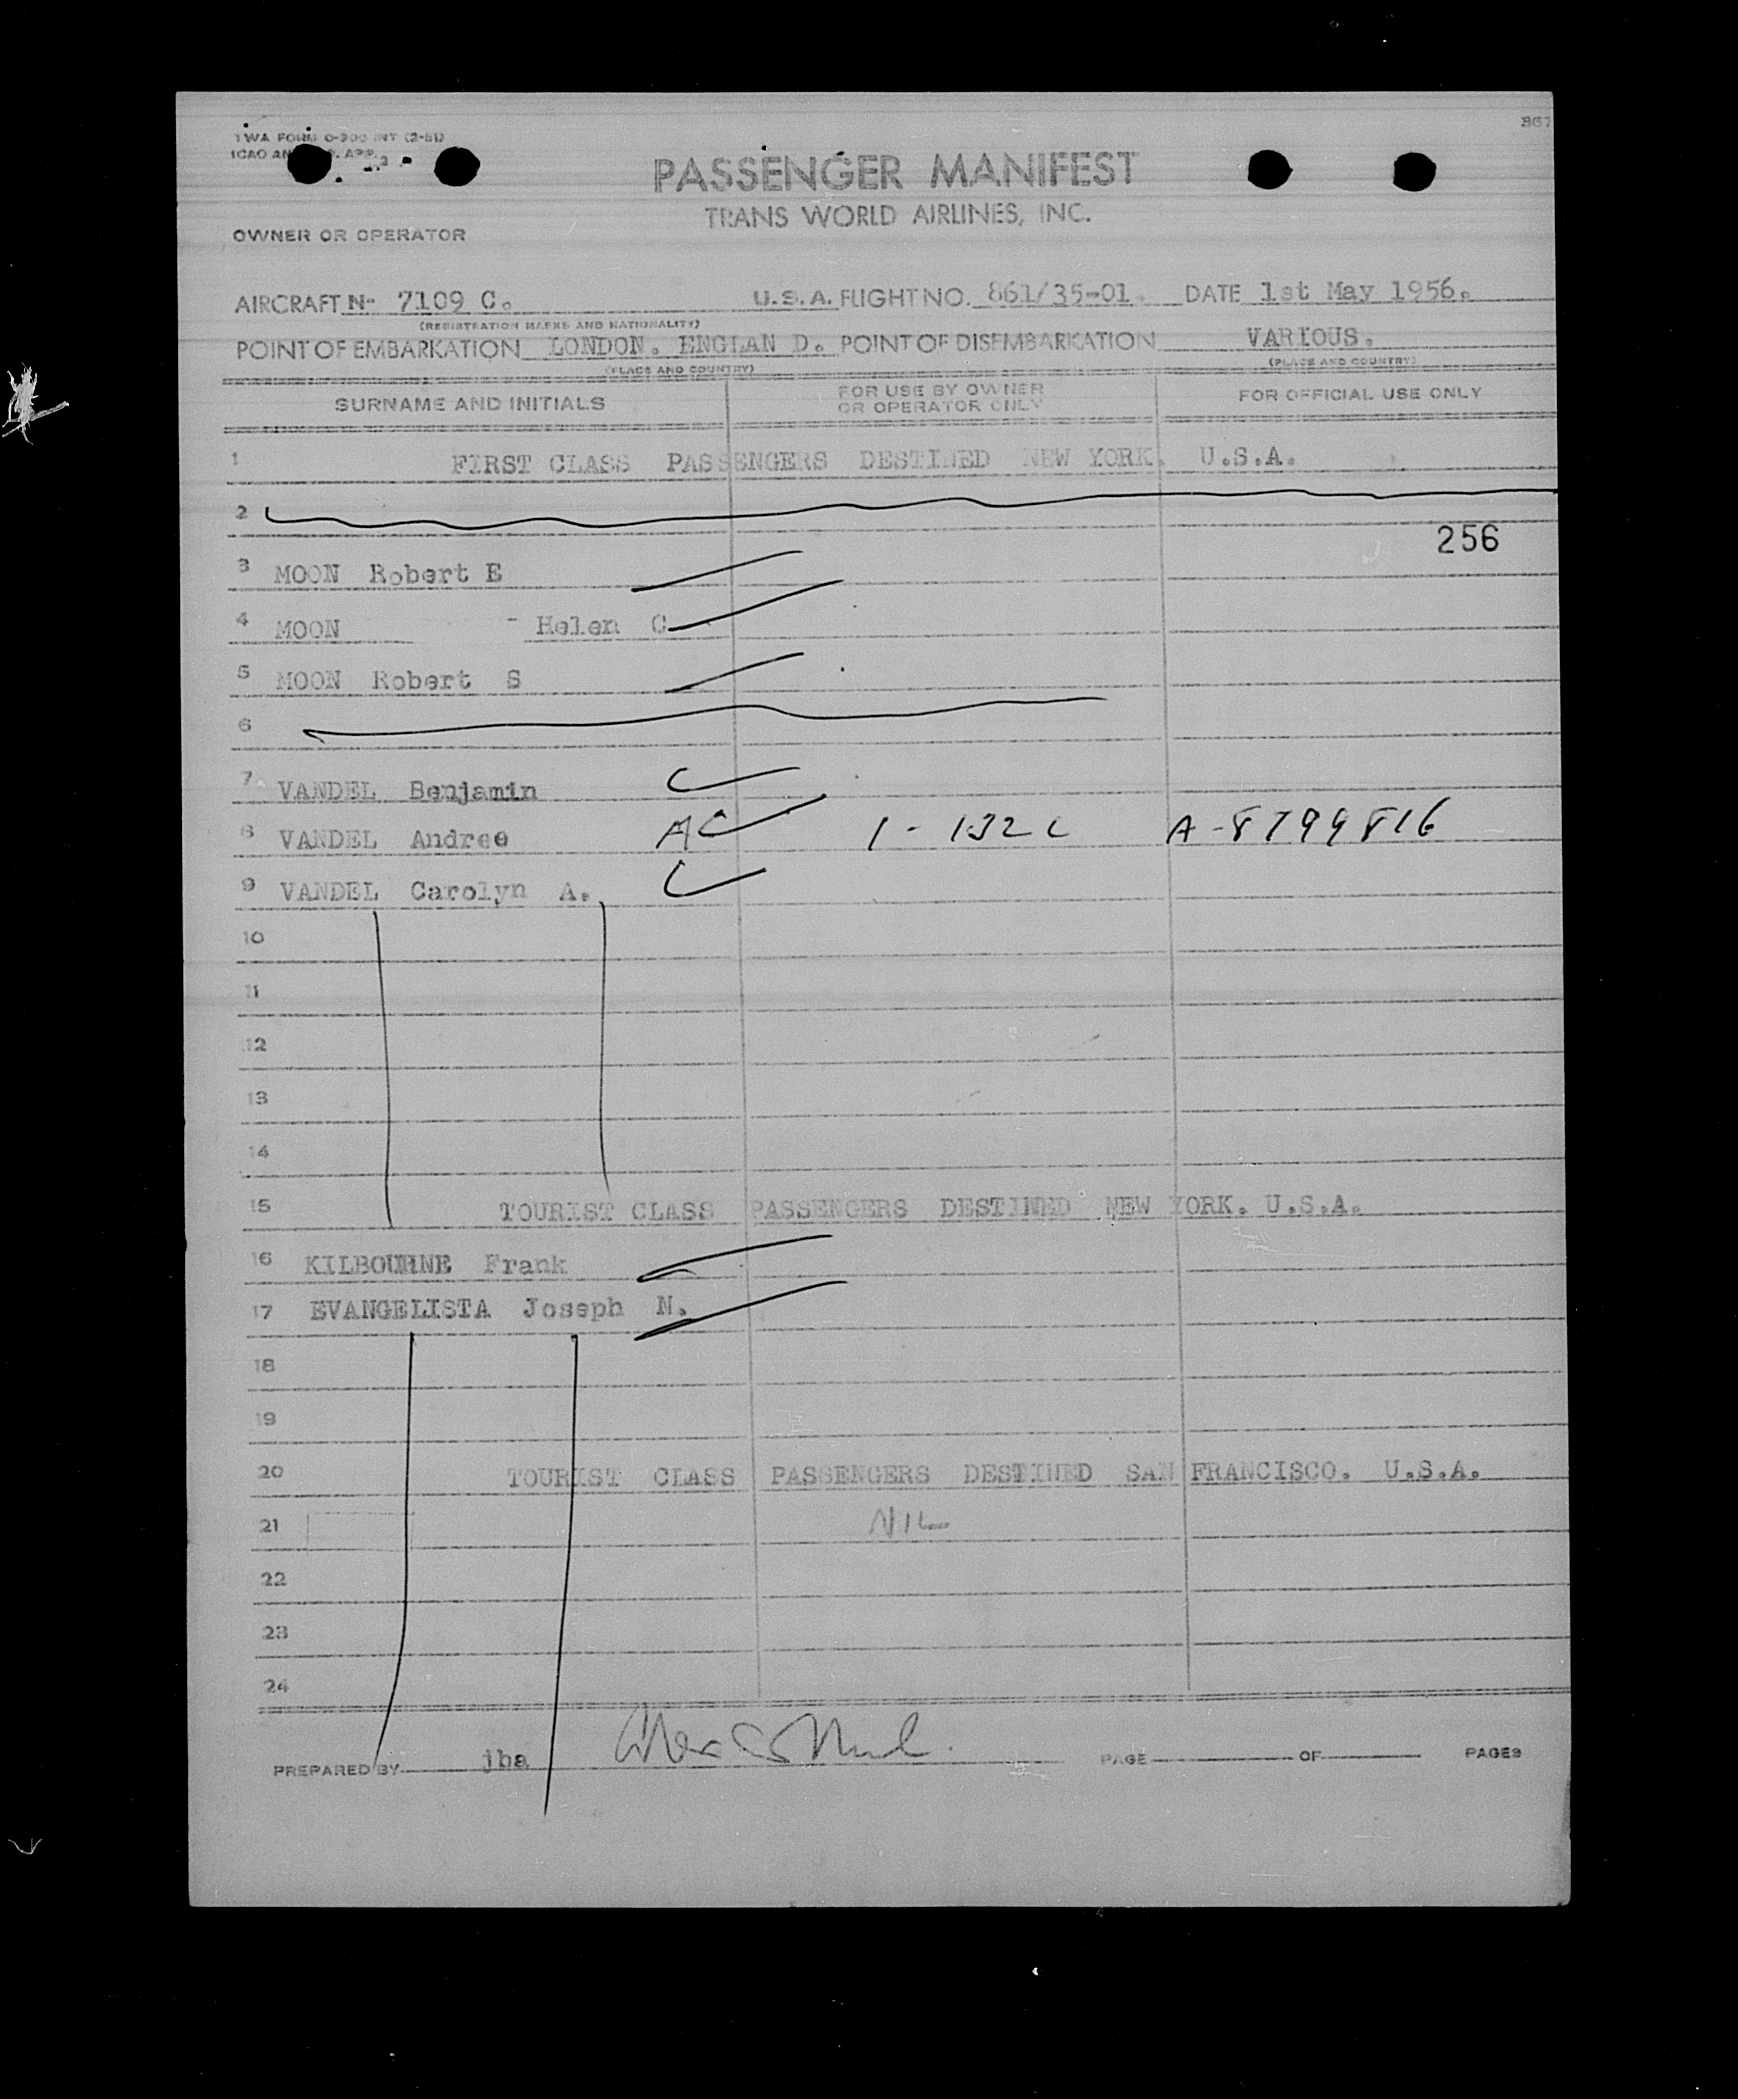 TWA FORM O-200 INT (2-51)
ICAO AN
PASSENGER MANIFEST
TRANS WORLD AIRLINES, INC.
OWNER OR OPERATOR
AIRCRAFT N- 7109 C. U.S.A. FLIGHT NO. 861/35-01. DATE 1st May 1956.
(REGISTRATION MARKS AND NATIONALITY)
POINT OF EMBARKATION LONDON. ENGLAN D. POINT OF DISEMBARKATION VARIOUS.
(PLACE AND COUNTRY) (PLACE AND COUNTRY)
SURNAME AND INITIALS FOR USE BY OWNER OR OPERATOR ONLY FOR OFFICIAL USE ONLY
1 FIRST CLASS PASSENGERS DESTINED NEW YORK. U.S.A.
2
256
3 MOON Robert E
4 MOON - Helen C
5 MOON Robert S
6
7 VANDEL Benjamin C
8 VANDEL Andree AC 1-132 C A-8799816
9 VANDEL Carolyn A. C
10
11
12
13
14
15 TOURIST CLASS PASSENGERS DESTINED NEW YORK. U.S.A.
16 KILBOURNE Frank
17 EVANGELISTA Joseph N.
18
19
20 TOURIST CLASS PASSENGERS DESTINED SAN FRANCISCO. U.S.A.
21 NIL
22
23
24
PREPARED BY jba PAGE OF PAGES